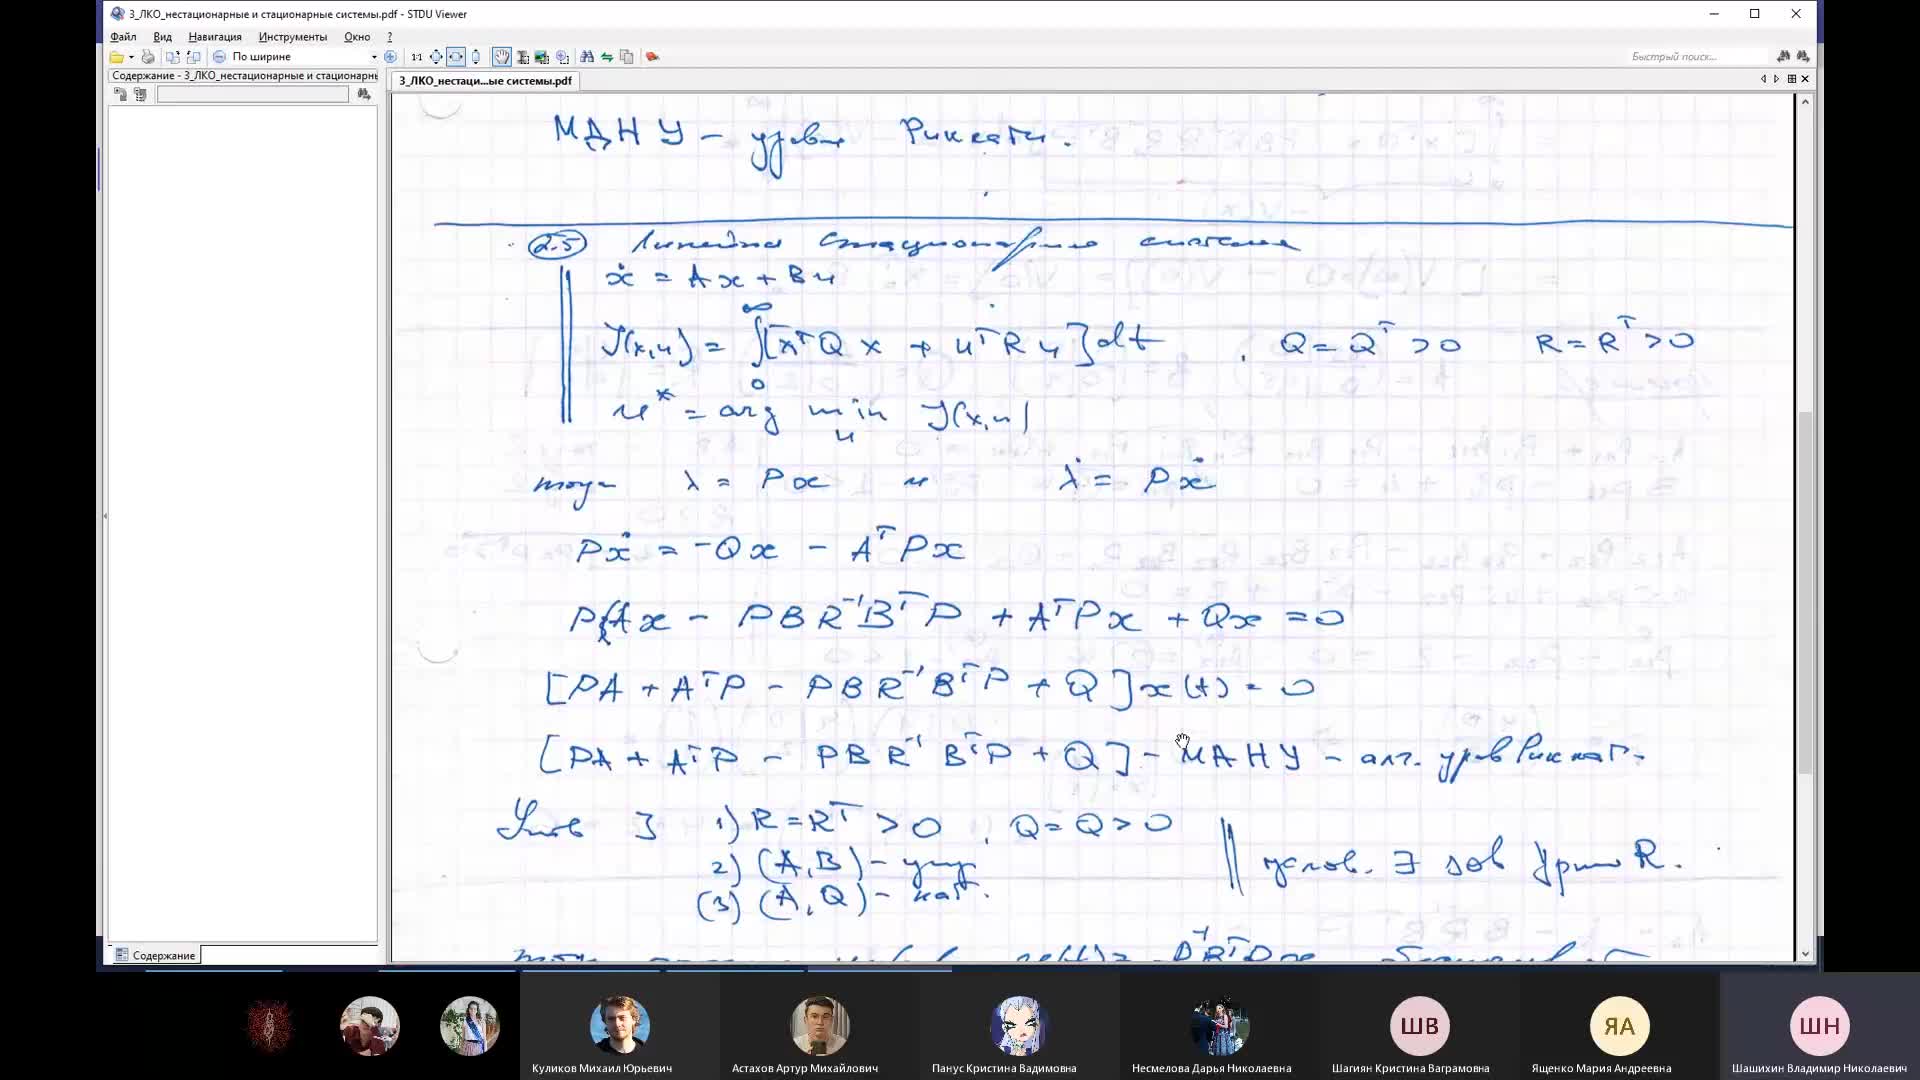 3_ЛКО_нестационарные и стационарные системы.pdf - STDU Viewer
Файл Вид Навигация Инструменты Окно ?
1:1 По ширине Быстрый поиск...
Содержание - 3_ЛКО_нестационарные и стационарнь
3_ЛКО_нестаци...ые системы.pdf
МДНУ - уравн Риккати.
2.5 Линейная стационарная система
ẋ = Ax + Bu
J(x,u) = ∫₀^∞ [xᵀQx + uᵀRu]dt, Q = Qᵀ > 0 R = Rᵀ > 0
u* = arg min_u J(x,u)
тогда λ = Px и λ̇ = Pẋ
Pẋ = -Qx - AᵀPx
P{Ax - PBR⁻¹BᵀP + AᵀPx + Qx = 0
[PA + AᵀP - PBR⁻¹BᵀP + Q]x(t) = 0
[PA + AᵀP - PBR⁻¹BᵀP + Q] - МАНУ - алг. уравн Риккат.
1) R = Rᵀ > 0, Q = Q > 0
2) (A, B) - упр
(3) (A, Q) - наб.
услов. ∃
Содержание
Куликов Михаил Юрьевич
Астахов Артур Михайлович
Панус Кристина Вадимовна
Несмелова Дарья Николаевна
ШВ
Шагиян Кристина Ваграмовна
ЯА
Ященко Мария Андреевна
ШН
Шашихин Владимир Николаевич